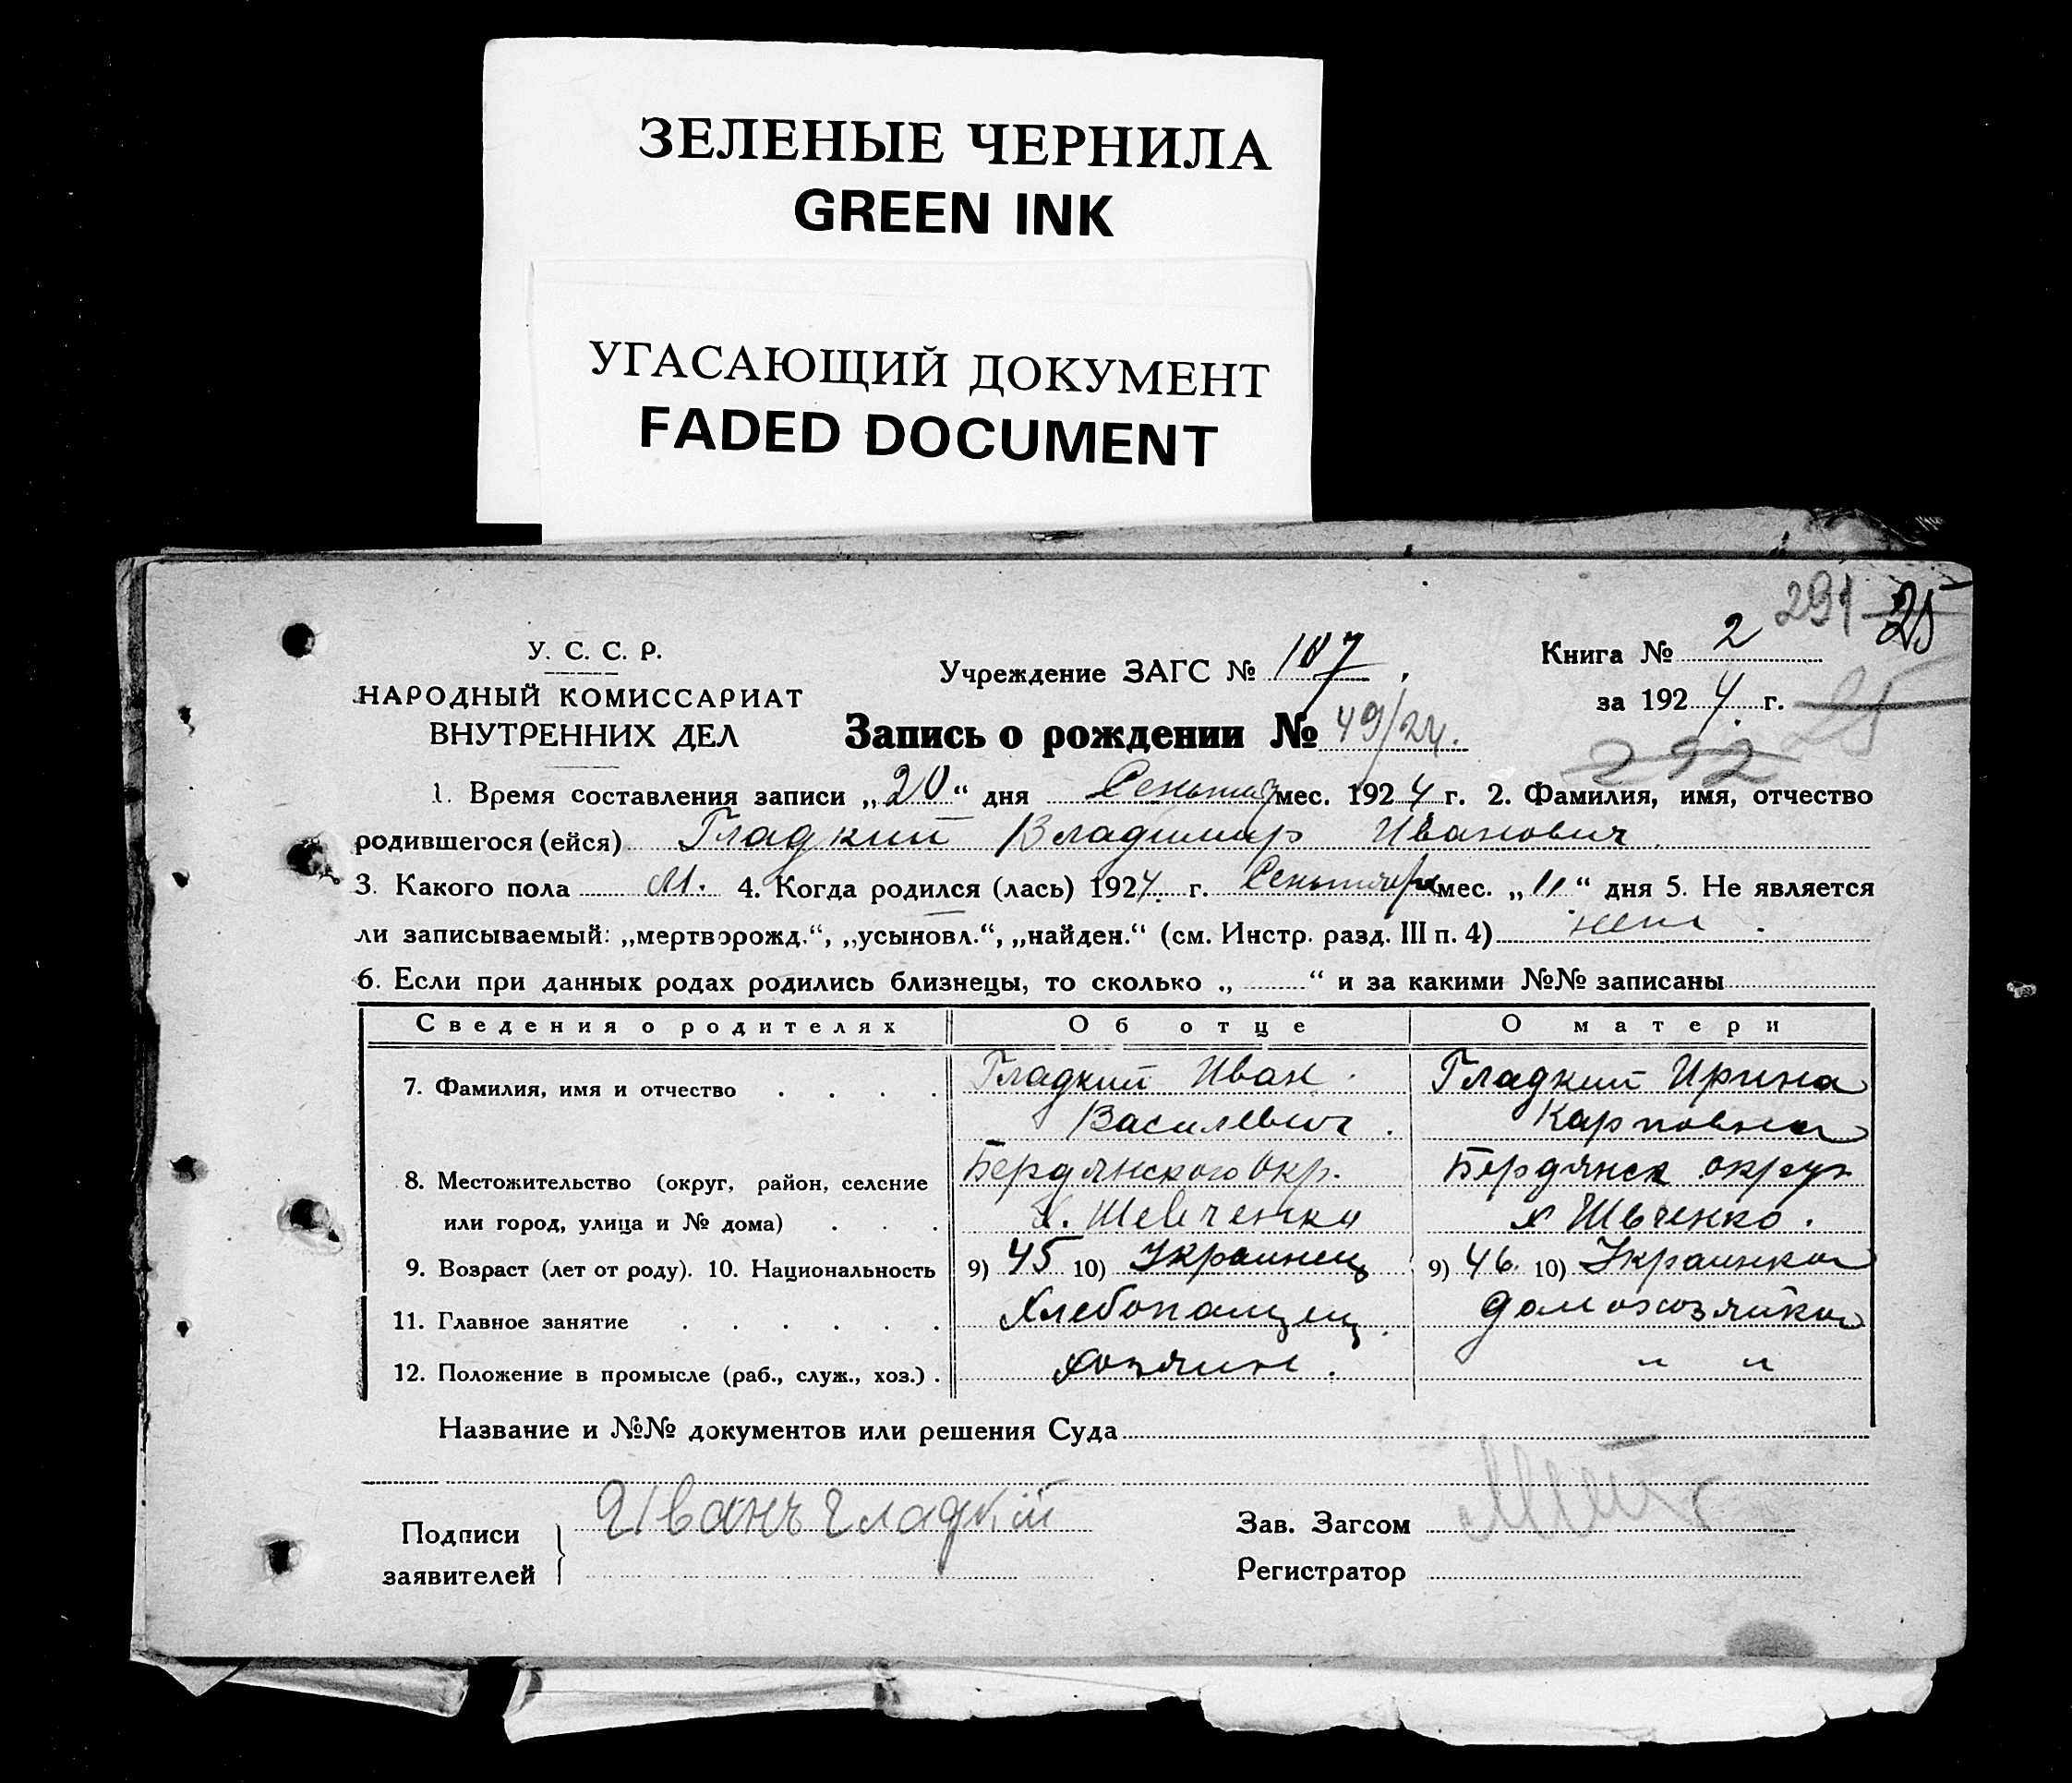 ЗЕЛЕНЫЕ ЧЕРНИЛА
GREEN INK
УГАСАЮЩИЙ ДОКУМЕНТ
FADED DOCUMENT
291 25
У. С. С. Р.
НАРОДНЫЙ КОМИССАРИАТ
ВНУТРЕННИХ ДЕЛ
Учреждение ЗАГС № 107
Книга № 2
за 1924 г. 25
Запись о рождении № 49/24.
292
1. Время составления записи „20“ дня Сентяб мес. 1924 г. 2. Фамилия, имя, отчество
родившегося (ейся) Гладкий Владимир Иванович.
3. Какого пола М. 4. Когда родился (лась) 1924. г. Сентября мес. „11“ дня 5. Не является
ли записываемый: „мертворожд.“, „усыновл.“, „найден.“ (см. Инстр. разд. III п. 4) нет.
6. Если при данных родах родились близнецы, то сколько „ “ и за какими №№ записаны
Сведения о родителях Об отце О матери
7. Фамилия, имя и отчество . . . . Гладкий Иван Гладкий Ирина
Василевич. Карповна
8. Местожительство (округ, район, селение Бердянского Окр. Бердянск округ
или город, улица и № дома) . . . х. Шевченка х Швченко.
9. Возраст (лет от роду). 10. Национальность 9) 45 10) Украинец 9) 46. 10) Украинка
11. Главное занятие . . . . . . Хлебопашец. домохозяйка
12. Положение в промысле (раб., служ., хоз.) . хозяин. " "
Название и №№ документов или решения Суда
Подписи заявителей Иванъ Гладкій
Зав. Загсом
Регистратор